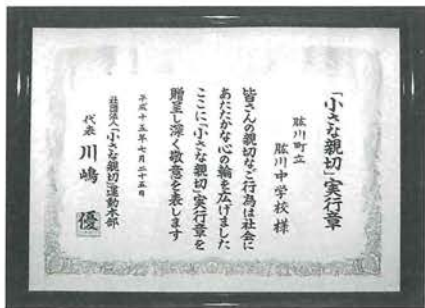 「小さな親切」実行章
肱川町立
肱川中学校様
皆さんの親切なご行為は社会に
あたたかな心の輪を広げました
ここに「小さな親切」実行章を
贈呈し深く敬意を表します
平成十五年七月二十五日
社団法人「小さな親切」運動本部
代表 川嶋 優
優